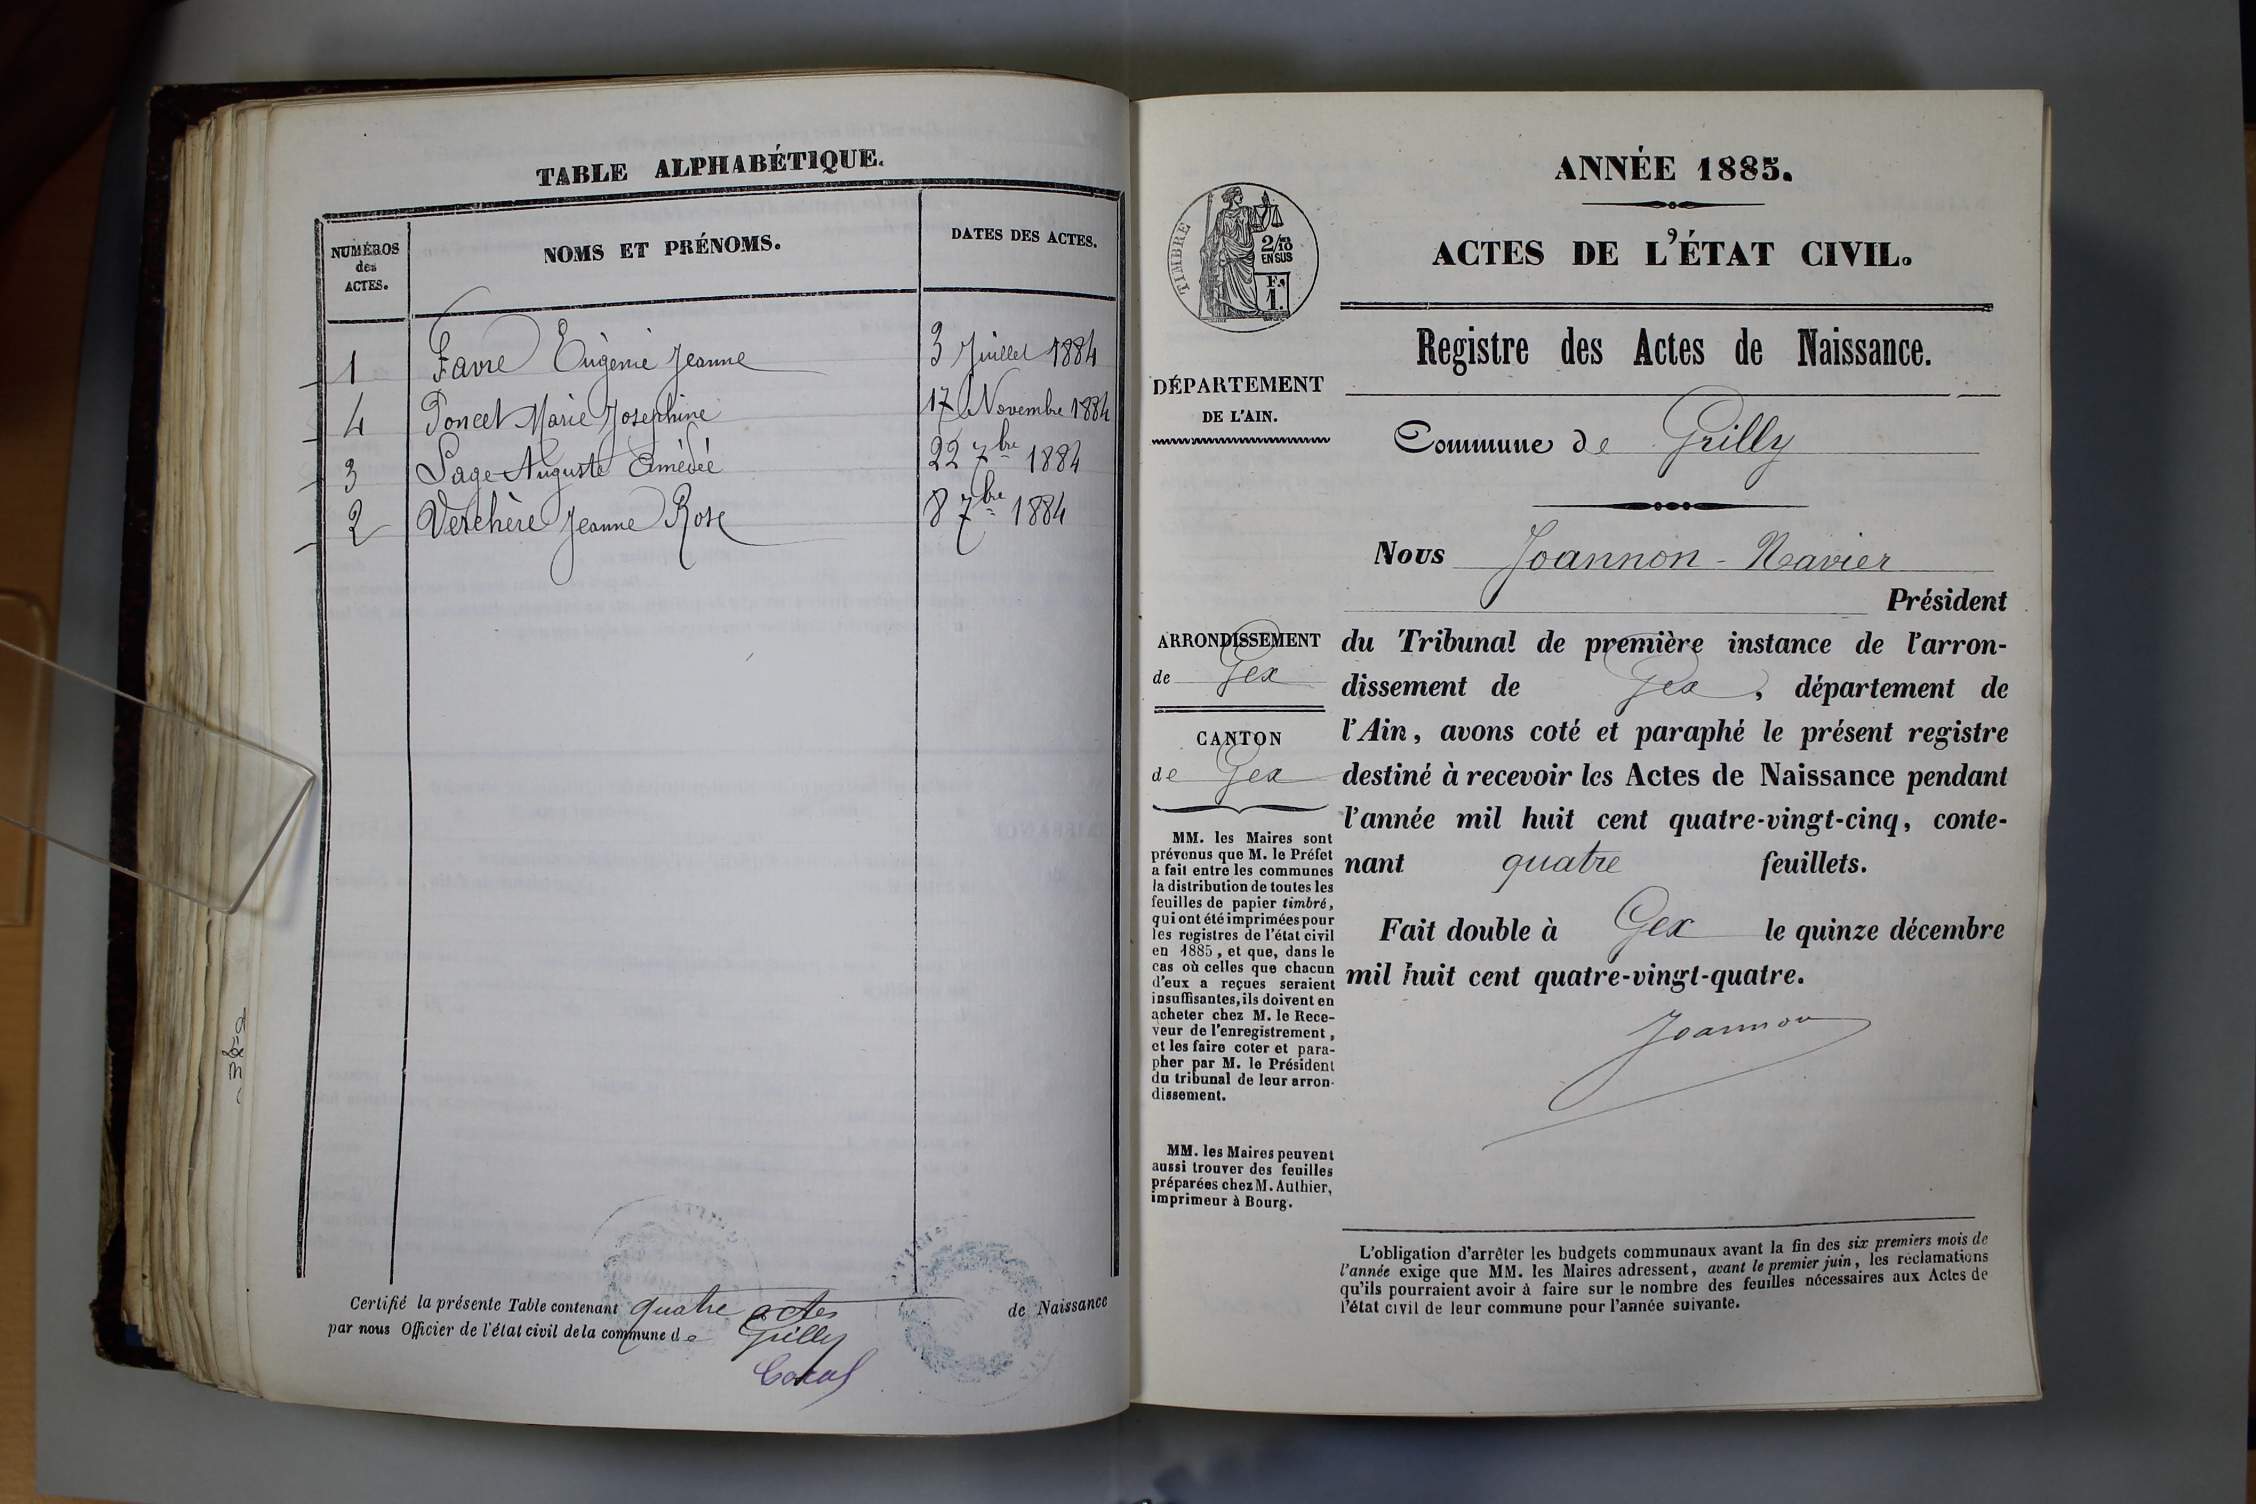 TABLE ALPHABÉTIQUE.
NUMÉROS
des
ACTES.
NOMS ET PRÉNOMS.
DATES DES ACTES.
1 Favre Eugénie Jeanne 3 Juillet 1884
4 Poncet Marie Josephine 17 Novembre 1884
3 Sage Auguste Amédée 22 7bre 1884
2 Verchère Jeanne Rose 8 7bre 1884
Certifié la présente Table contenant quatre actes de Naissance
par nous Officier de l'état civil de la commune de Grilly
ANNÉE 1885.
ACTES DE L'ÉTAT CIVIL.
TIMBRE
2/10
EN SUS
F.
1.
Registre des Actes de Naissance.
DÉPARTEMENT
DE L'AIN.
Commune de Grilly
Nous Joannon-Navier
Président
ARRONDISSEMENT
de Gex
CANTON
de Gex
du Tribunal de première instance de l'arron-
dissement de Gex, département de
l'Ain, avons coté et paraphé le présent registre
destiné à recevoir les Actes de Naissance pendant
l'année mil huit cent quatre-vingt-cinq, conte-
nant quatre feuillets.
Fait double à Gex le quinze décembre
mil huit cent quatre-vingt-quatre.
Joannon
MM. les Maires sont
prévenus que M. le Préfet
a fait entre les communes
la distribution de toutes les
feuilles de papier timbré,
qui ont été imprimées pour
les registres de l'état civil
en 1885, et que, dans le
cas où celles que chacun
d'eux a reçues seraient
insuffisantes, ils doivent en
acheter chez M. le Rece-
veur de l'enregistrement,
et les faire coter et para-
pher par M. le Président
du tribunal de leur arron-
dissement.
MM. les Maires peuvent
aussi trouver des feuilles
préparées chez M. Authier,
imprimeur à Bourg.
L'obligation d'arrêter les budgets communaux avant la fin des six premiers mois de
l'année exige que MM. les Maires adressent, avant le premier juin, les réclamations
qu'ils pourraient avoir à faire sur le nombre des feuilles nécessaires aux Actes de
l'état civil de leur commune pour l'année suivante.